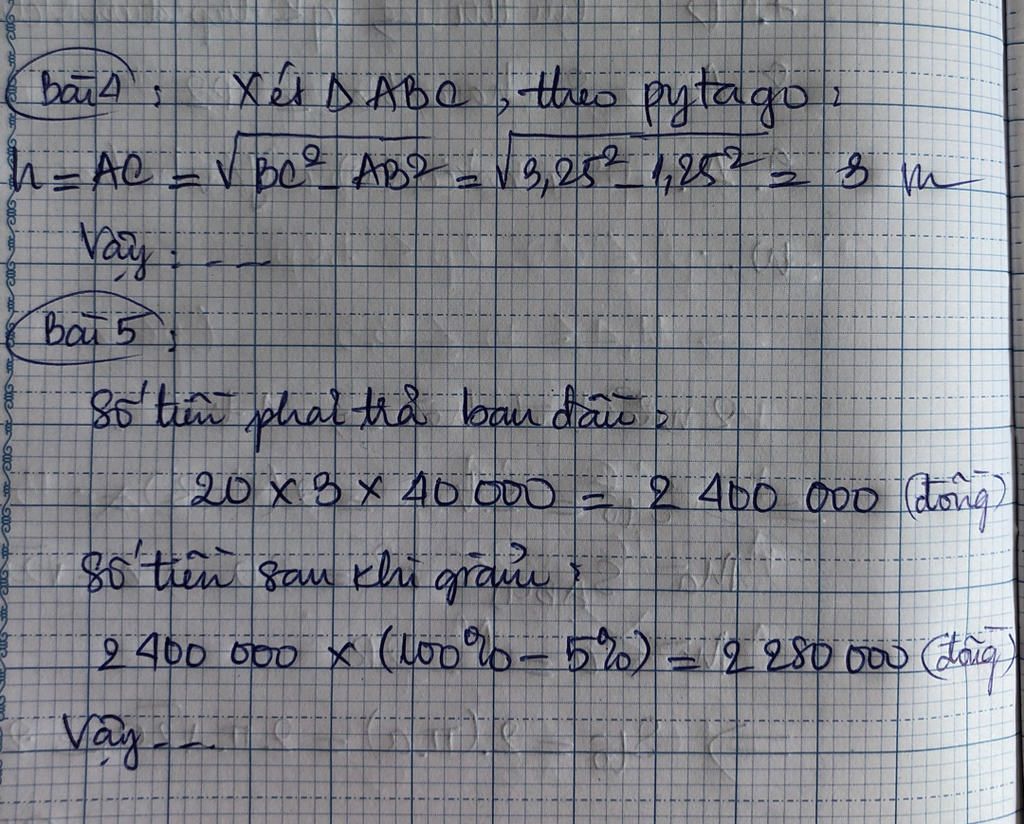 Bài 4: Xét Δ ABC, theo pytago:
h = AC = √BC² - AB² = √3,25² - 1,25² = 3 m
Vậy: - -
Bài 5:
Số tiền phải trả ban đầu:
20 x 3 x 40 000 = 2 400 000 (đồng)
Số tiền sau khi giảm:
2 400 000 x (100% - 5%) = 2 280 000 (đồng)
Vậy - -